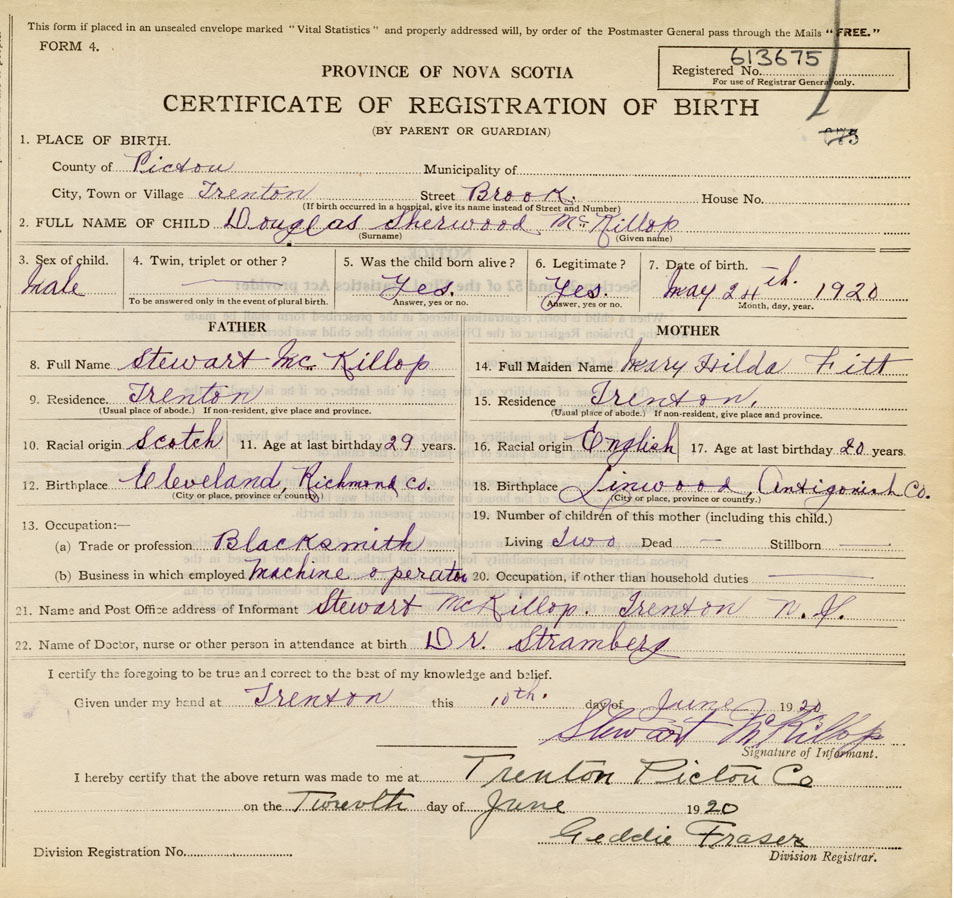 This form if placed in an unsealed envelope marked "Vital Statistics" and properly addressed will, by order of the Postmaster General pass through the Mails "FREE."
FORM 4.
Registered No. 613675
For use of Registrar General only.
PROVINCE OF NOVA SCOTIA
CERTIFICATE OF REGISTRATION OF BIRTH
(BY PARENT OR GUARDIAN)
1. PLACE OF BIRTH.
County of Pictou Municipality of
City, Town or Village Trenton Street Brook. House No.
(If birth occurred in a hospital, give its name instead of Street and Number)
2. FULL NAME OF CHILD Douglas Sherwood McKillop
(Surname) (Given name)
3. Sex of child. 4. Twin, triplet or other? 5. Was the child born alive? 6. Legitimate? 7. Date of birth.
Male Yes. Yes. May 24th. 1920
To be answered only in the event of plural birth. Answer, yes or no. Answer, yes or no. Month, day, year.
FATHER MOTHER
8. Full Name Stewart McKillop 14. Full Maiden Name Mary Hilda Fitt
9. Residence. Trenton 15. Residence Trenton.
(Usual place of abode.) If non-resident, give place and province. (Usual place of abode.) If non-resident, give place and province.
10. Racial origin Scotch 11. Age at last birthday 29 years. 16. Racial origin English 17. Age at last birthday 20 years.
12. Birthplace Cleveland, Richmond Co. 18. Birthplace Linwood, Antigonish Co.
(City or place, province or country) (City or place, province or country.)
13. Occupation:— 19. Number of children of this mother (including this child.)
(a) Trade or profession Blacksmith Living Two Dead — Stillborn
(b) Business in which employed Machine operator 20. Occupation, if other than household duties
21. Name and Post Office address of Informant Stewart McKillop. Trenton N. S.
22. Name of Doctor, nurse or other person in attendance at birth Dr. Stramberg
I certify the foregoing to be true and correct to the best of my knowledge and belief.
Given under my hand at Trenton this 10th. day of June 1920
Stewart McKillop
Signature of Informant.
I hereby certify that the above return was made to me at Trenton Pictou Co
on the Twevlth day of June 1920
Geddie Fraser
Division Registration No. Division Registrar.